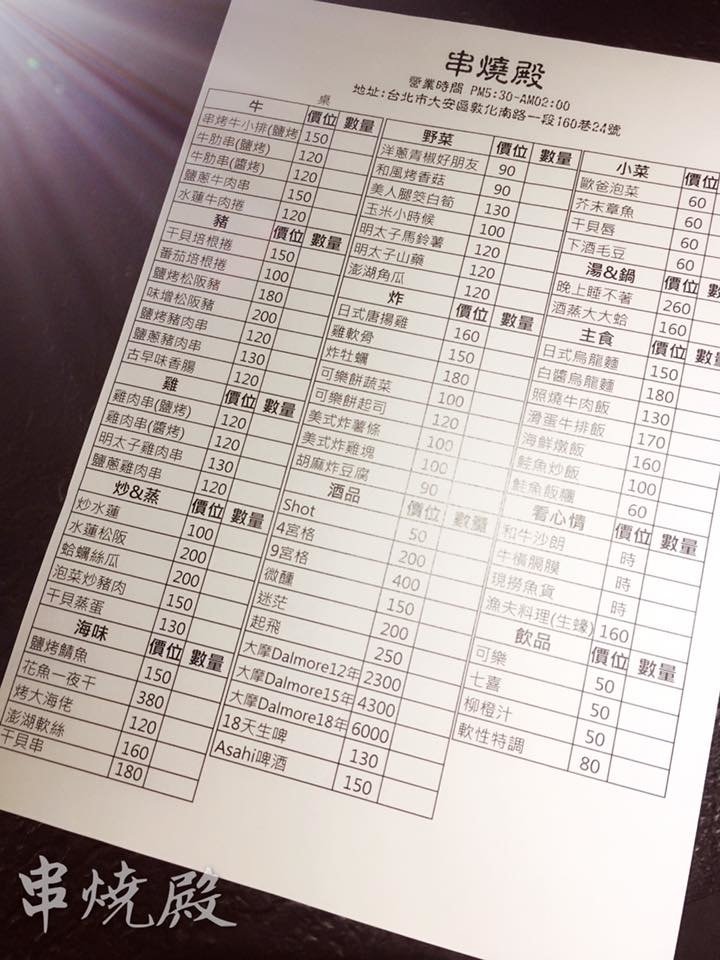 串燒殿
營業時間 PM5:30-AM02:00
地址:台北市大安區敦化南路一段160巷24號
桌
牛 價位 數量
串烤牛小排(鹽烤 150
牛肋串(鹽烤) 120
牛肋串(醬烤) 120
鹽蔥牛肉串 150
水蓮牛肉捲 120
豬 價位 數量
干貝培根捲 150
番茄培根捲 100
鹽烤松阪豬 180
味增松阪豬 200
鹽烤豬肉串 120
鹽蔥豬肉串 130
古早味香腸 120
雞 價位 數量
雞肉串(鹽烤) 120
雞肉串(醬烤) 120
明太子雞肉串 130
鹽蔥雞肉串 120
炒&蒸 價位 數量
炒水蓮 100
水蓮松阪 200
蛤蠣絲瓜 200
泡菜炒豬肉 150
干貝蒸蛋 130
海味 價位 數量
鹽烤鯖魚 150
花魚一夜干 380
烤大海佬 120
澎湖軟絲 160
干貝串 180
野菜 價位 數量
洋蔥青椒好朋友 90
和風烤香菇 90
美人腿筊白筍 130
玉米小時候 100
明太子馬鈴薯 120
明太子山藥 120
澎湖角瓜 120
炸 價位 數量
日式唐揚雞 160
雞軟骨 150
炸牡蠣 180
可樂餅蔬菜 100
可樂餅起司 120
美式炸薯條 100
美式炸雞塊 100
胡麻炸豆腐 90
酒品 價位 數量
Shot 50
4宮格 200
9宮格 400
微醺 150
迷茫 200
起飛 250
大摩Dalmore12年 2300
大摩Dalmore15年 4300
大摩Dalmore18年 6000
18天生啤 130
Asahi啤酒 150
小菜 價位
歐爸泡菜 60
芥末章魚 60
干貝唇 60
下酒毛豆 60
湯&鍋 價位
晚上睡不著 260
酒蒸大大蛤 160
主食 價位
日式烏龍麵 150
白醬烏龍麵 180
照燒牛肉飯 130
滑蛋牛排飯 170
海鮮燉飯 160
鮭魚炒飯 100
鮭魚飯糰 60
看心情 價位 數量
和牛沙朗 時
牛橫膈膜 時
現撈魚貨 時
漁夫料理(生蠔) 160
飲品 價位 數量
可樂 50
七喜 50
柳橙汁 50
軟性特調 80
串燒殿